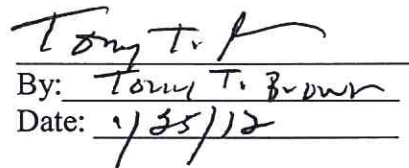 Tony T.
By: Tony T. Brown
Date: 1/25/12